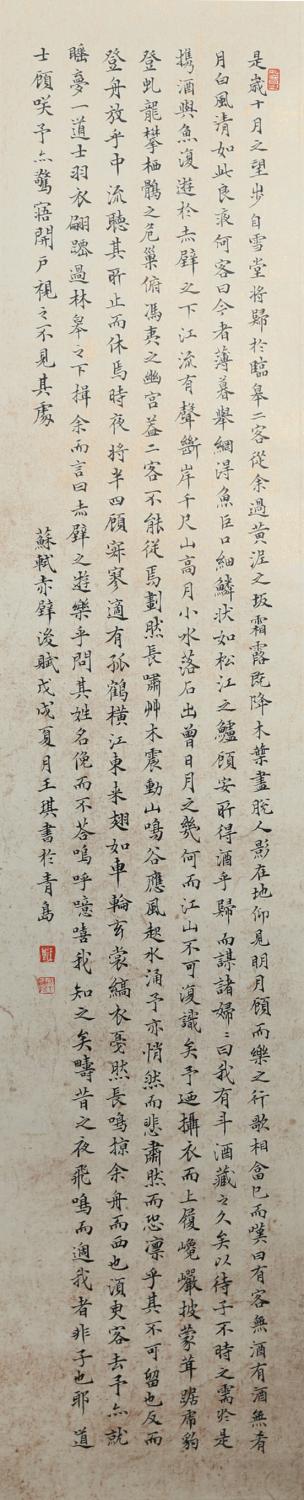 是歲十月之望步自雪堂將歸於臨皋二客從余過黃泥之坂霜露既降木葉盡脫人影在地仰見明月顧而樂之行歌相畣已而嘆曰有客無酒有酒無肴
月白風清如此良夜何客曰今者薄暮舉網得魚巨口細鱗狀如松江之鱸顧安所得酒乎歸而謀諸婦〻曰我有斗酒藏之久矣以待子不時之需於是
攜酒與魚復遊於赤壁之下江流有聲斷岸千尺山高月小水落石出曾日月之幾何而江山不可復識矣予迺攝衣而上履巉巖披蒙茸踞虎豹
登虬龍攀栖鶻之危巢俯馮夷之幽宮蓋二客不能從焉劃然長嘯艸木震動山鳴谷應風起水涌予亦悄然而悲肅然而恐凜乎其不可留也反而
登舟放乎中流聽其所止而休焉時夜將半四顧寂寥適有孤鶴橫江東来翅如車輪玄裳縞衣戛然長鳴掠余舟而西也須臾客去予亦就
睡夢一道士羽衣翩躚過林皋之下揖余而言曰赤壁之遊樂乎問其姓名俛而不荅嗚呼噫嘻我知之矣疇昔之夜飛鳴而過我者非子也耶道
士顧笑予亦驚寤開戶視之不見其處
蘇軾赤壁後賦戊戌夏月王琪書於青島